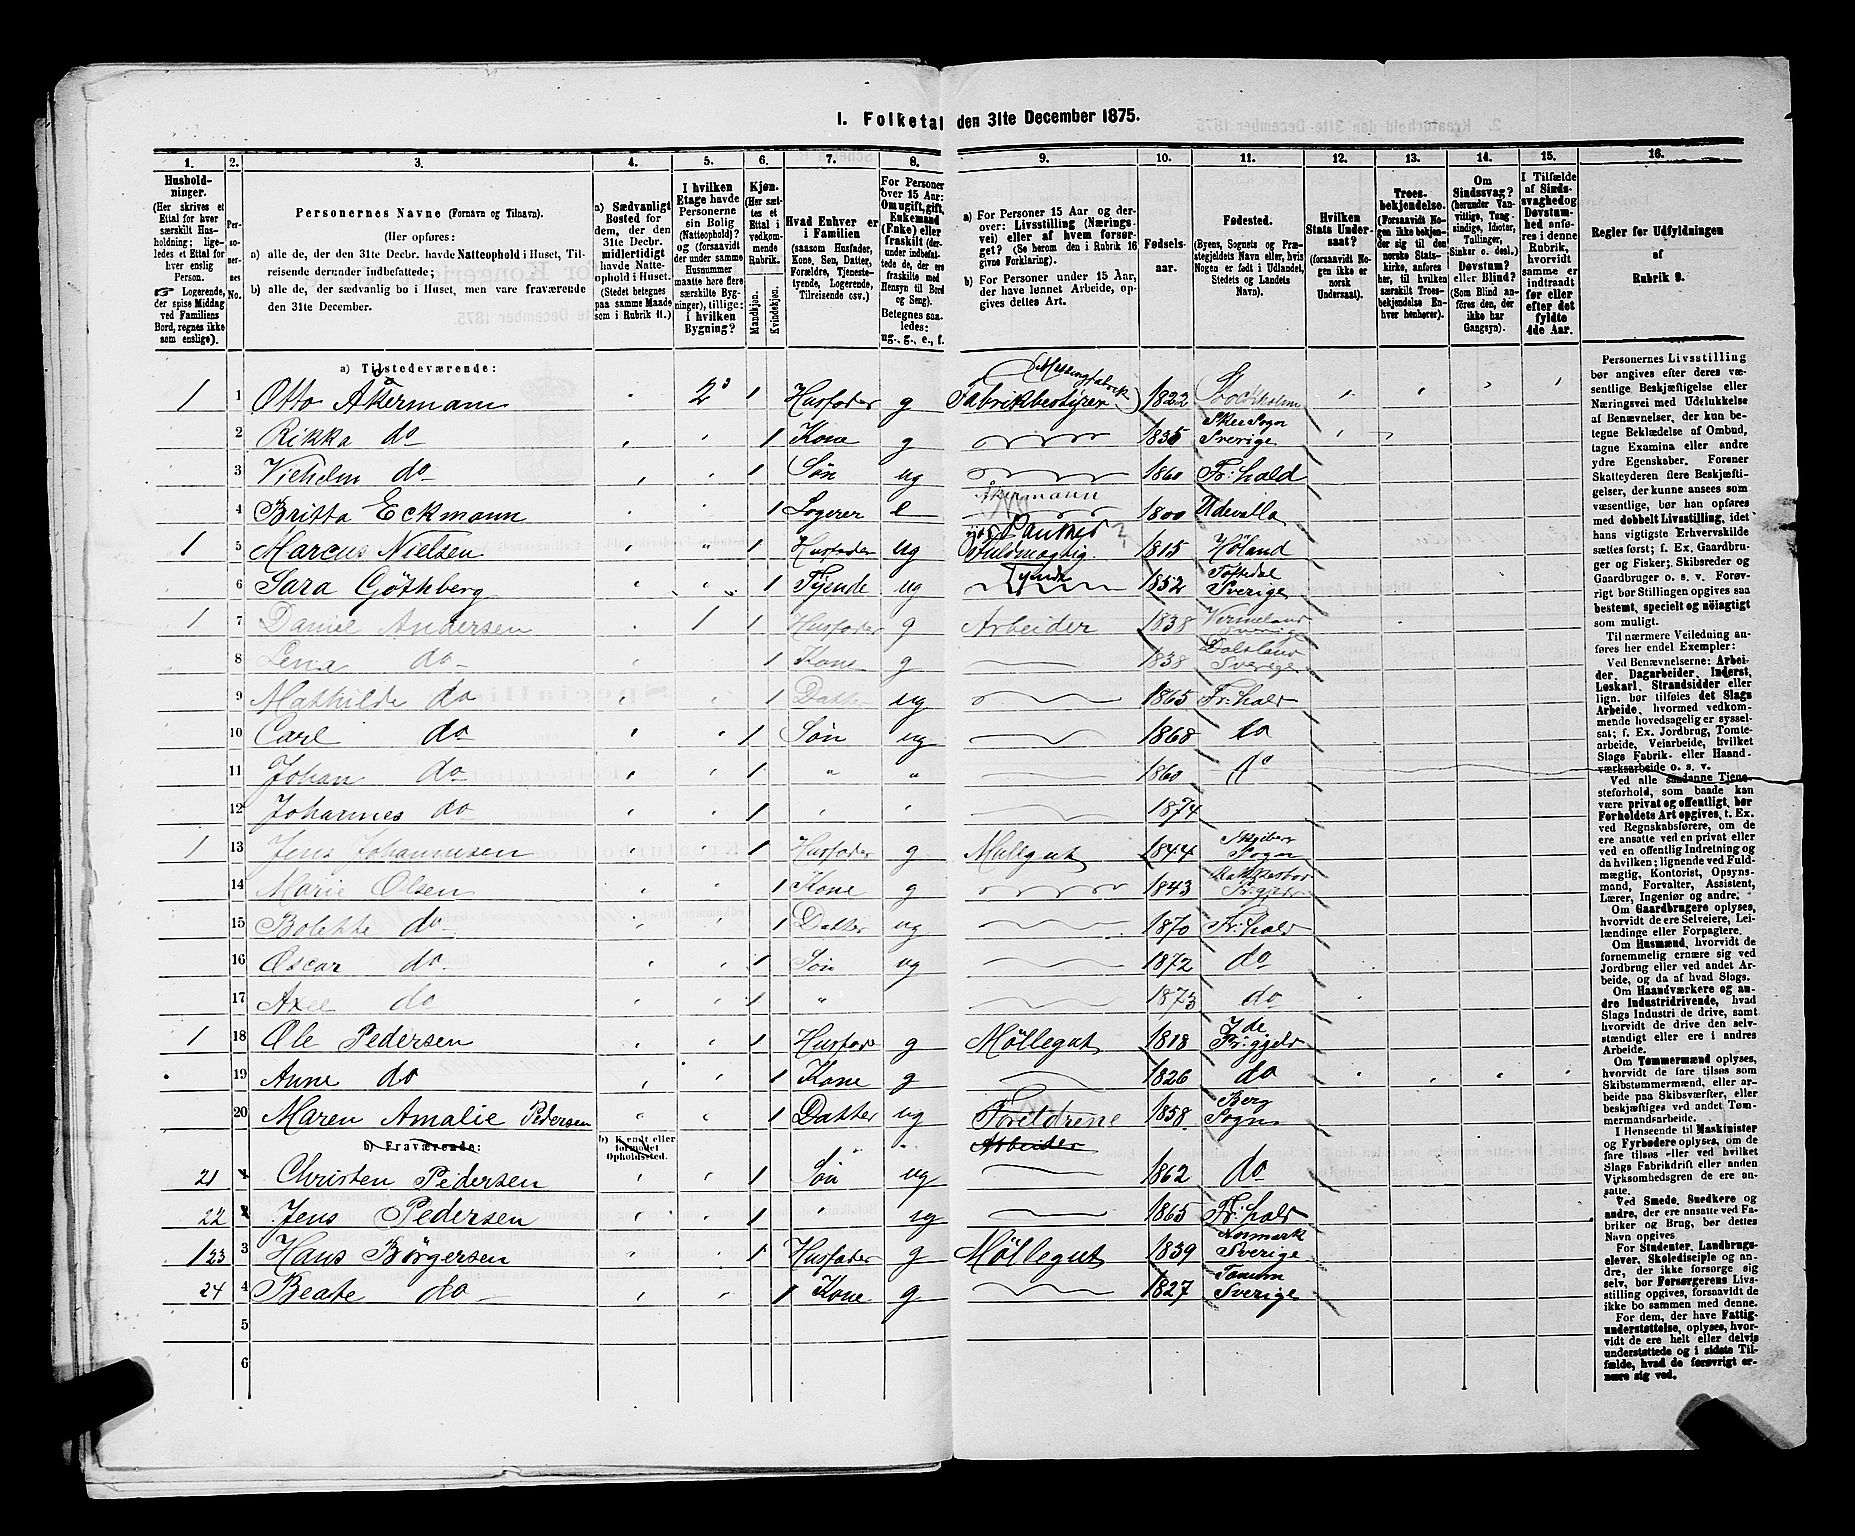 1. Folketal den 31te December 1875.
1. 2. 3. 4. 5. 6. 7. 8. 9. 10. 11. 12. 13. 14. 15. 16.
Husholdninger.
(Her skrives et
Ettal for hver
særskilt Husholdning; ligeledes
et Ettal for
hver enslig
Person.
☞ Logerende,
der spise Middag
ved Familiens
Bord, regnes ikke
som enslige).
Personernes No.
Personernes Navne (Fornavn og Tilnavn).
(Her opføres:
a) alle de, der den 31te Decbr. havde Natteophold i Huset, Tilreisende
derunder indbefattede;
b) alle de, der sædvanlig bo i Huset, men vare fraværende
den 31te December.
a) Sædvanligt
Bosted for
dem, der den
31te Decbr.
midlertidigt
havde Natteophold
i Huset.
(Stedet betegnes
paa samme Maade
som i Rubrik 11.)
I hvilken
Etage havde
Personerne
sin Bolig
(Natteophold)?
og (forsaavidt
der under samme
Husnummer
maatte høre flere
særskilte Bygninger),
tillige:
i hvilken
Bygning?
Kjøn.
(Her sættes
et Ettal i
vedkommende
Rubrik.
Mandkjøn.
Kvindekjøn.
Hvad Enhver er
i Familien
(saasom Husfader,
Kone, Søn, Datter,
Forældre, Tjenestetyende,
Logerende,
Tilreisende osv.)
For Personer
over 15 Aar:
Om ugift, gift,
Enkemand
(Enke) eller
fraskilt (derunder
indbefattede
de, der ere
fraskilte med
Hensyn til Bord
og Seng).
Betegnes saaledes:
ug., g., e., f.
a) For Personer 15 Aar og derover:
Livsstilling (Næringsvei)
eller af hvem forsørget?
(Se herom den i Rubrik 16
givne Forklaring).
b) For Personer under 15 Aar,
der have lønnet Arbeide, opgives
dettes Art.
Fødselsaar.
Fødested.
(Byens, Sognets og Præstegjeldets
Navn eller, hvis
Nogen er født i Udlandet,
Stedets og Landets
Navn).
Hvilken
Stats Undersaat?
(forsaavidt Nogen
ikke er
norsk
Undersaat).
Troesbekjendelse.
(Forsaavidt Nogen
ikke bekjender
sig til den
norske Statskirke,
anføres
her, til hvilket
særskilt Troesbekjendelse
Enhver
henhører).
Om
Sindssvag?
(herunder Vanvittige,
Tungsindige,
Idioter,
Tullinger,
Sinker o. desl.)
Døvstum?
eller Blind?
(Som Blind anføres
den, der
ikke har
Gangsyn).
I Tilfælde
af Sindssvaghed
og
Døvstumhed
anføres
i denne
Rubrik,
hvorvidt
samme er
indtraadt
før eller
efter det
fyldte
4de Aar.
Regler for Udfyldningen
af
Rubrik 9.
a) Tilstedeværende:
1 1 Otto Åkermann 2 1 Husfader g Fabrikbestyrer (Messingfabrik) 1822 Stockholm
2 Rikka do 1 Kone g 1835 Skee Sogn Sverige
3 Vilhelm do 1 Søn ug 1860 Fr:hald
4 Britta Eckmann 1 Logerer e Åkermann 1800 Udevalla
1 5 Marcus Nielsen 1 Husfader ug Fuldmægtig 1815 Høland
6 Sara Gøthberg 1 Tjende ug Tyende 1852 Sverige
1 7 Daniel Andersen 1 1 Husfader g Arbeider 1838 Vermeland Sverige
8 Lena do 1 Kone g 1838 Dalsland Sverige
9 Mathilde do 1 Datter ug 1865 Fr:hald
10 Carl do 1 Søn ug 1868 do
11 Johan do 1 " " 1860 do
12 Johannes do 1 " " 1874
1 13 Jens Johannesen 1 Husfader g Møllegut 1844 Skjeberg Sogn
14 Marie Olsen 1 Kone g 1843
15 Bolette do 1 Datter ug 1870 Fr:hald
16 Oscar do 1 Søn ug 1872 do
17 Axel do 1 " 1873 do
1 18 Ole Pedersen 1 Husfader g Møllegut 1818 Ide Pr:gjeld
19 Anne do 1 Kone g 1826 do
20 Maren Amalie Pedersen 1 Datter ug Foreldrene 1858 Berg Sogn
b) Fraværende: b) Kjendt eller formodet Opholdssted. Arbeider
21 Christen Pedersen 1 Søn ug 1862 do
22 Jens Pedersen 1 " ug 1865 Fr:hald
1 23 3 Hans Børgersen 1 Husfader g Møllegut 1839 Sverige
24 4 Beate do 1 Kone g 1827 Tanum Sverige
5
6
Personernes Livsstilling
bør angives efter deres væsentlige
Beskjæftigelse eller
Næringsvei med Udelukkelse
af Benævnelser, der kun betegne
Beklædelse af Ombud,
tagne Examina eller andre
ydre Egenskaber. Forener
Skatteyderen flere Beskjæftigelser,
der kunne ansees som
væsentlige, bør han opføres
med dobbelt Livsstilling, idet
hans vigtigste Erhvervskilde
sættes først; f. Ex. Gaardbruger
og Fisker; Skibsreder og
Gaardbruger o. s. v. Forøvrigt
bør Stillingen opgives saa
bestemt, specielt og nöiagtigt
som muligt.
Til nærmere Veiledning anføres
her endel Exempler:
Ved Benævnelserne: Arbeider,
Dagarbeider, Inderst,
Løskarl, Strandsidder eller
lign. bør tilføies det Slags
Arbeide, hvormed vedkommende
hovedsagelig er sysselsat;
f. Ex. Jordbrug, Tomtearbeide,
Veiarbeide, hvilket
Slags Fabrik- eller Haandværksarbeide
o. s. v.
Ved alle saadanne Tjenesteforhold,
som baade kan
være privat og offentligt, bør
Forholdets Art opgives, t. Ex.
ved Regnskabsførere, om de
ere ansatte ved en privat eller
ved en offentlig Indretning og
da hvilken; lignende ved Fuldmægtig,
Kontorist, Opsynsmand,
Forvalter, Assistent,
Lærer, Ingeniør og andre.
Om Gaardbrugere oplyses,
hvorvidt de ere Selveiere, Leilændinge
eller Forpagtere.
Om Husmænd, hvorvidt de
fornemmelig ernære sig ved
Jordbrug eller ved andet Arbeide,
og da af hvad Slags.
Om Haandværkere og andre
Industridrivende, hvad
Slags Industri de drive, samt
hvorvidt de drive den selvstændigt
eller ere i andres
Arbeide.
Om Tømmermænd oplyses,
hvorvidt de fare tilsøs som
Skibstømmermænd, eller arbeide
paa Skibsværfter, eller
beskjæftiges ved andet Tømmermandsarbeide.
I Henseende til Maskinister
og Fyrbødere oplyses, om de
fare tilsøs eller ved hvilket
Slags Fabrikdrift eller anden
Virksomhedsgren de ere ansatte.
Ved Smede, Snedkere og
andre, der ere ansatte ved Fabriker
og Brug, bør dettes
Navn opgives.
For Studenter, Landbrugselever,
Skoledisciple og andre,
der ikke forsørge sig
selv, bør Forsørgerens Livsstilling
opgives, forsaavidt de
ikke bo sammen med denne.
For dem, der have Fattigunderstøttelse,
oplyses, hvorvidt
de ere helt eller delvis
understøttede og i sidste Tilfælde,
hvad de forøvrigt ernære
sig ved.